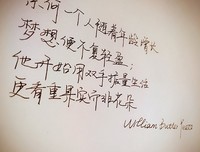 任何一个人随着年龄增长
梦想便不复轻盈；
他开始用双手掂量生活
更看重果实而非花朵
William Butler Yeats